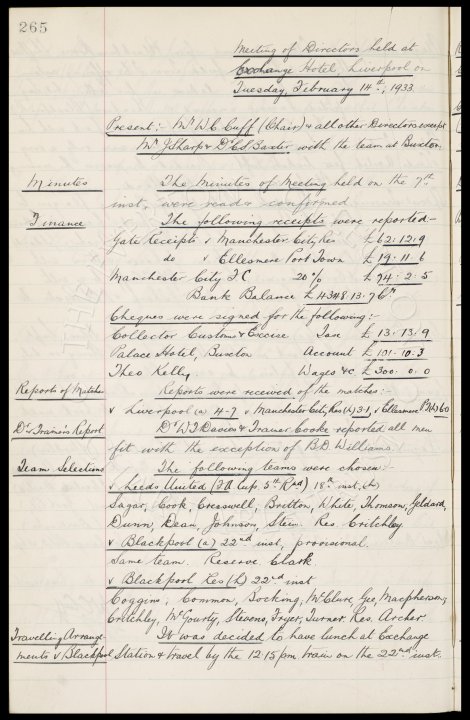 265
Meeting of Directors held at
Exchange Hotel, Liverpool on
Tuesday, February 14th, 1933.
Present:- Mr W.C. Cuff (Chair) & all other Directors except
Mr J Sharp & Dr C.S. Baxter with the team at Buxton.
Minutes The Minutes of Meeting held on the 7th
inst. were read & confirmed
Finance The following receipts were reported:-
Gate Receipts v Manchester City Res £62.12.9
do v Ellesmere Port Town £19.11.6
Manchester City F.C 20% £74.2.5
Bank Balance
Cheques were signed for the following:-
Collector Customs & Excise Tax £13.13.9
Palace Hotel, Buxton Account £101.10.3
Theo Kelly Wages &c £300.0.0
Reports of Matches Reports were received of the matches:-
v Liverpool (a) 4-7 v Manchester City Res (h) 3.1, v Ellesmere P (h) 6.0
Dr & Trainer's Report Dr W.J. Davies & Trainer Cooke reported all men
fit with the exception of B.D. Williams.
Team Selections The following teams were chosen:-
v Leeds United (FA Cup, 5th Rnd) 18th inst. (h)
Sagar, Cook, Cresswell, Britton, White, Thomson, Geldard,
Dunn, Dean, Johnson, Stein. Res. Critchley
v Blackpool (a) 22nd inst, provisional.
Same team. Reserve Clark
v Blackpool Res (h) 22nd inst
Coggins, Common, Bocking, McClure, Gee, Macpherson,
Critchley, McGourty, Stevens, Fryer, Turner. Res. Archer.
Travelling Arrange It was decided to have lunch at Exchange
ments v Blackpool Station & travel by the 12.15 pm. train on the 22nd inst.